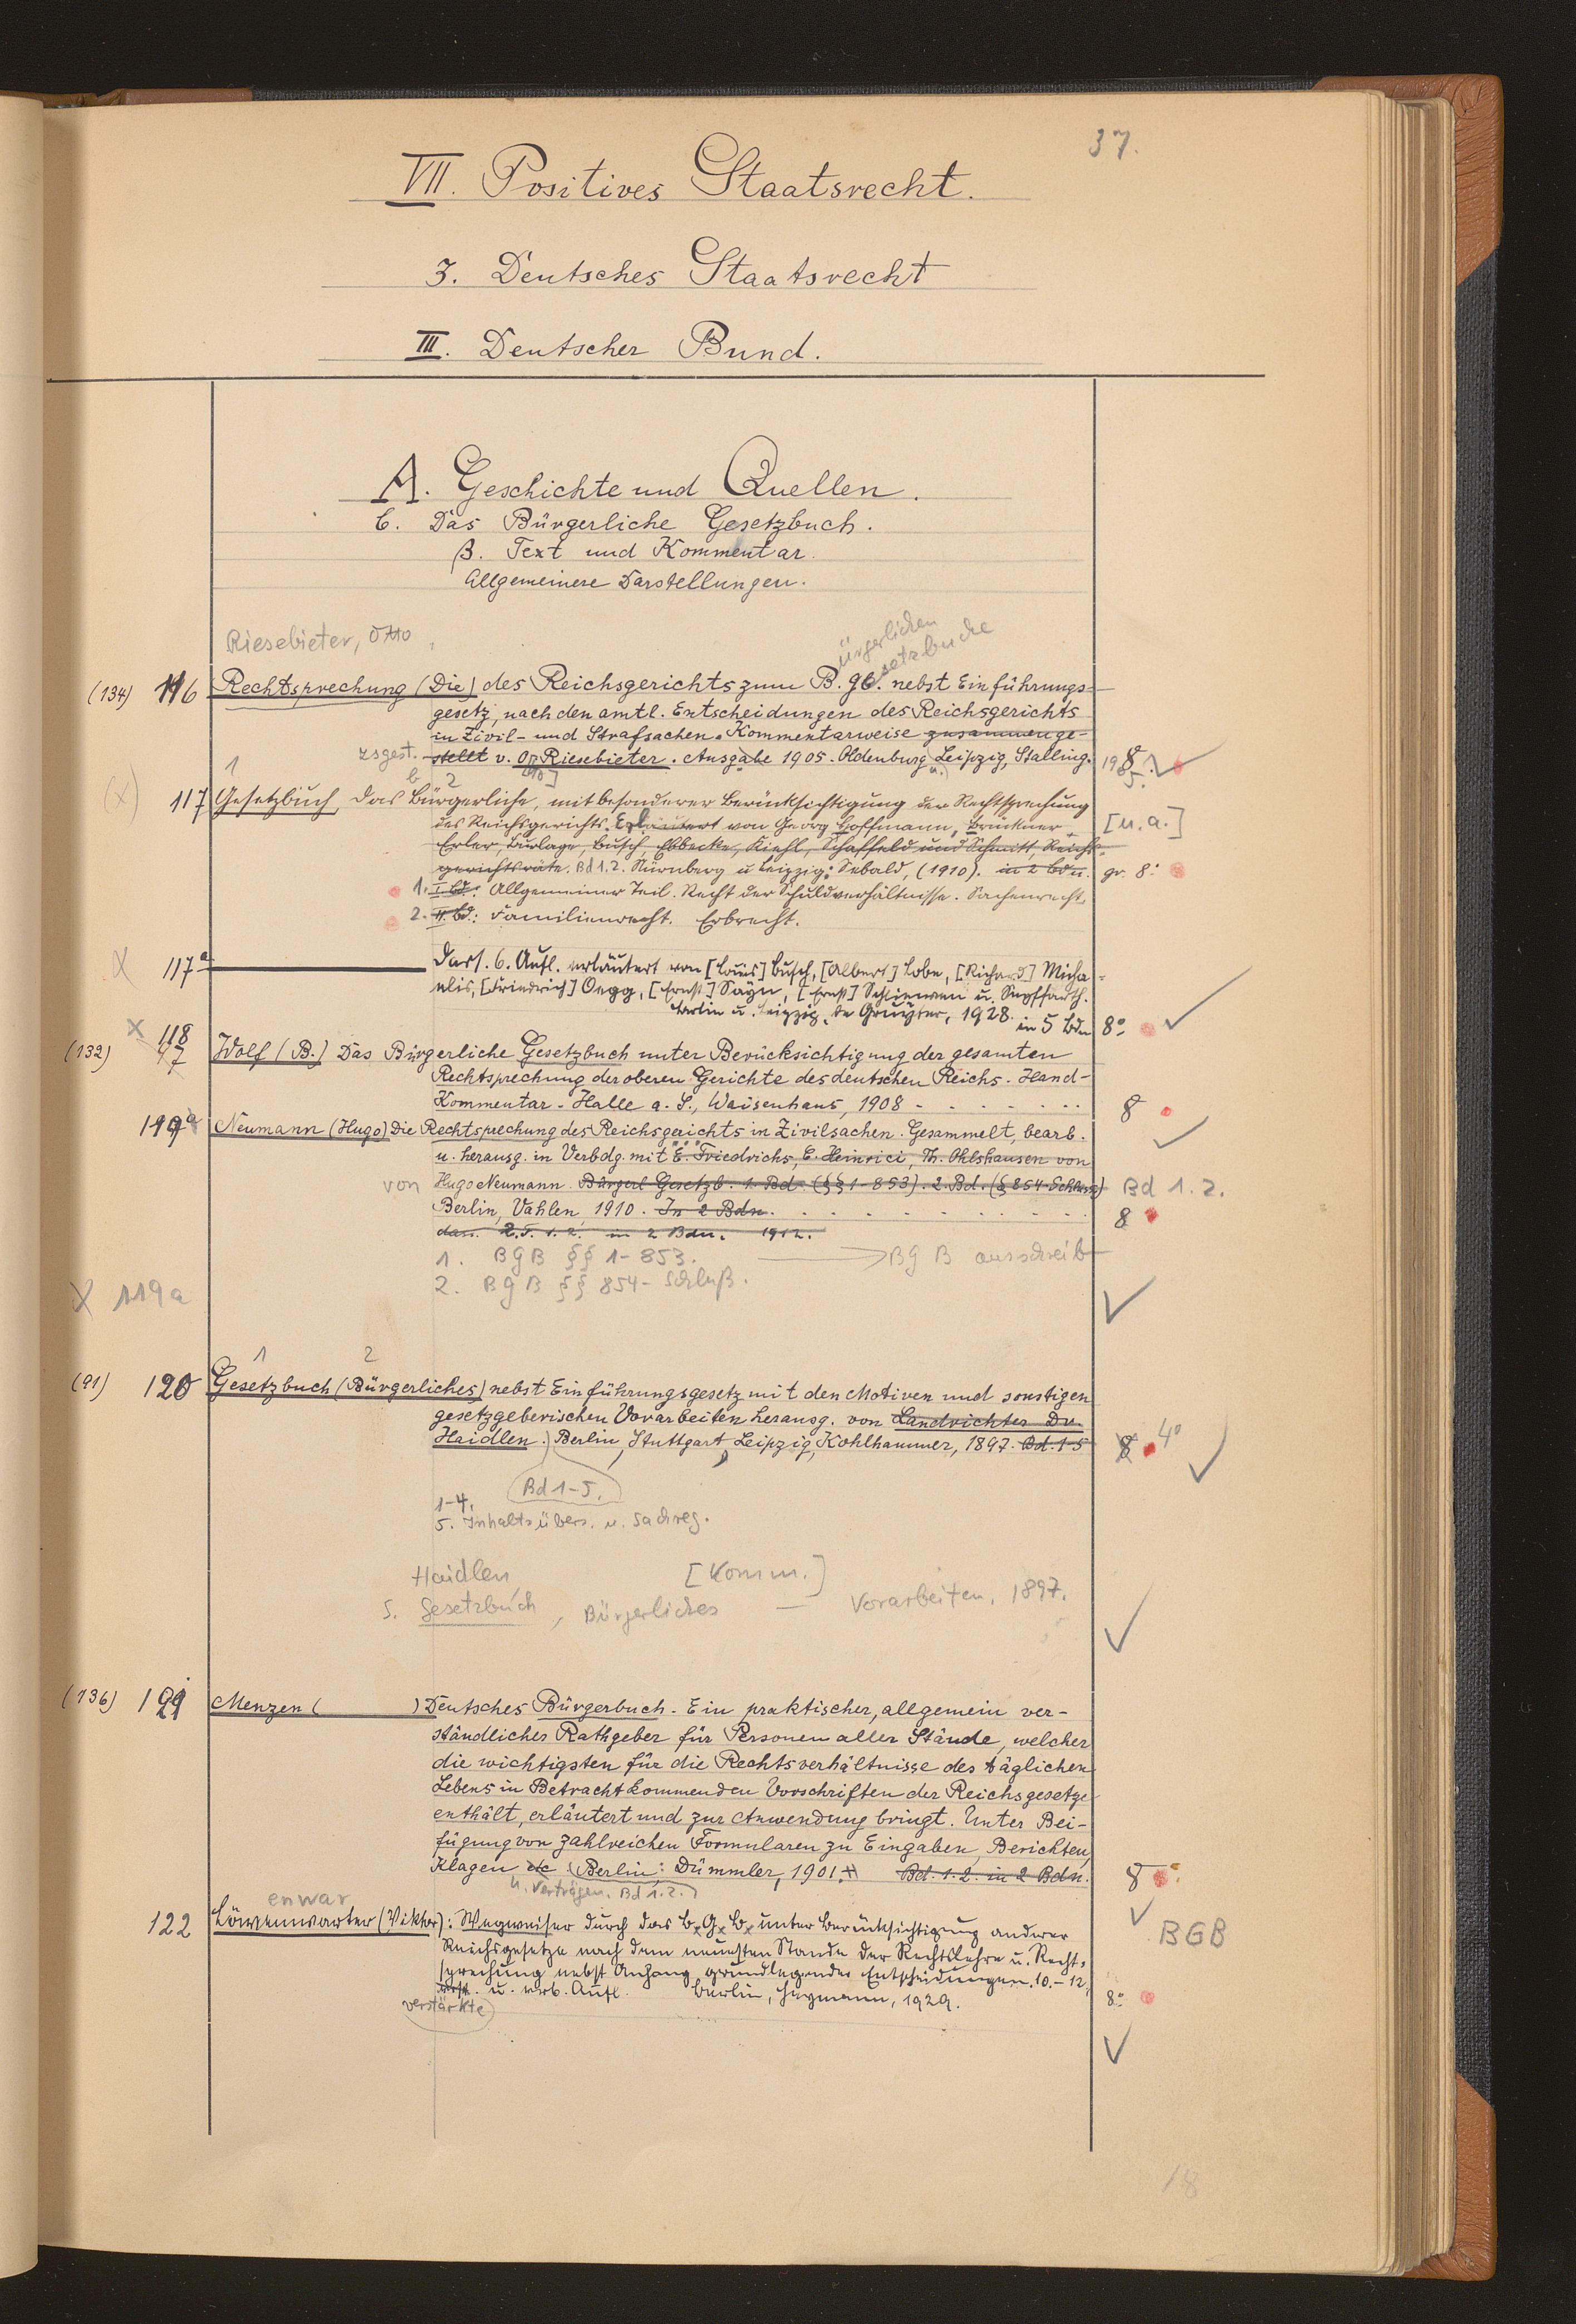 37.
VII. Positives Staatsrecht.
3. Deutsches Staatsrecht
III. Deutscher Bund.
A. Geschichte und Quellen.
C. Das Bürgerliche Gesetzbuch.
β. Text und Kommentar.
Allgemeinere Darstellungen.
Riesebieter, Otto
ürgerlichen
setzbuche
(134) 116 Rechtsprechung (Die) des Reichsgerichts zum B. Gb. nebst Einführungs-
gesetz, nach den amtl. Entscheidungen des Reichsgerichts
in Zivil- und Strafsachen. Kommentarweise zusammenge-
zsgest. stellt v. O. Riesebieter. Ausgabe 1905. Oldenburg u. Leipzig, Stalling. 1905. 8
1 2
(x) 117 Gesetzbuch, das Bürgerliche, mit besonderer Berücksichtigung der Rechtsprechung
des Reichsgerichts. Erläutert von Georg Hoffmann, Brückner, [u.a.]
Erler, Burlage, Busch, Ebbecke, Kiehl, Schaffeld und Schmitt, Reichs-
gerichtsräte. Bd 1.2. Nürnberg u Leipzig: Sebald, (1910). in 2 Bdn. gr. 8°
1. I. Bd.: Allgemeiner Teil. Recht der Schuldverhältnisse. Sachenrecht.
2. II. Bd.: Familienrecht. Erbrecht.
x 117a Dass. 6. Aufl. erläutert von [Louis] Busch, [Albert] Lobe, [Richard] Micha-
elis, [Friedrich] Oegg, [Ernst] Sayn, [Ernst] Schliewen u. Seyffarth.
Berlin u. Leipzig, de Gruyter, 1928. in 5 Bdn 8°
x 118
(132) 97 Wolf (B.) Das Bürgerliche Gesetzbuch unter Berücksichtigung der gesamten
Rechtsprechung der oberen Gerichte des deutschen Reichs. Hand-
Kommentar - Halle a. S., Waisenhaus, 1908 - 8
119a Neumann (Hugo) Die Rechtsprechung des Reichsgerichts in Zivilsachen. Gesammelt, bearb.
u. herausg. in Verbdg. mit E. Friedrichs, C. Heinrici, Th. Ohlshausen von
von Hugo Neumann. Bürgerl Gesetzb. 1. Bd. (§§ 1-853). 2. Bd. (§ 854-Schluss) Bd 1.2.
Berlin, Vahlen, 1910. In 2 Bdn. 8
dass. 2.T. 1.2. in 2 Bdn. 1912.
1. BGB §§ 1-853. BGB ausschreib
2. BGB §§ 854- Schluß.
x 119a
1 2
(91) 120 Gesetzbuch (Bürgerliches) nebst Einführungsgesetz mit den Motiven und sonstigen
gesetzgeberischen Vorarbeiten herausg. von Landrichter Dr.
Haidlen. Berlin, Stuttgart, Leipzig, Kohlhammer, 1897. Bd. 1-5 8 4°
Bd 1-5.
1-4.
5. Inhaltsübers. u. Sachreg.
Haidlen [Komm.]
s. Gesetzbuch, Bürgerliches — Vorarbeiten. 1897.
(136) 121 Menzen ( ) Deutsches Bürgerbuch. Ein praktischer, allgemein ver-
ständlicher Rathgeber für Personen aller Stände, welcher
die wichtigsten für die Rechtsverhältnisse des täglichen
Lebens in Betracht kommenden Vorschriften der Reichsgesetze
enthält, erläutert und zur Anwendung bringt. Unter Bei-
fügung von zahlreichen Formularen zu Eingaben, Berichten,
Klagen etc Berlin: Dümmler, 1901. Bd. 1.2. in 2 Bdn. 8
u. Verträgen. Bd 1.2.
enwar
122 Löwenwarter (Viktor): Wegweiser durch das B.G.B. unter Berücksichtigung anderer BGB
Reichsgesetze nach dem neuesten Stande der Rechtslehre u. Recht-
sprechung nebst Anhang grundlegender Entscheidungen. 10.-12.
verst. u. verb. Aufl. Berlin, Heymann, 1929. 8°
verstärkte
18